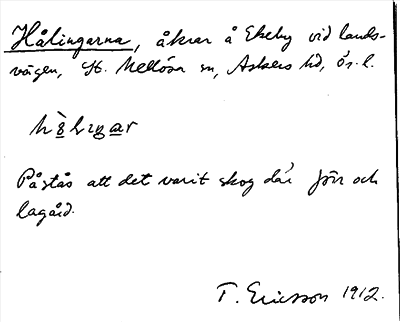 Hålingarna, åkrar å Ekeby vid lands-
vägen, St. Mellösa sn, Askers hd, ör. l.
Påstås att det varit skog där förr och
lagård.
T. Ericsson 1912.